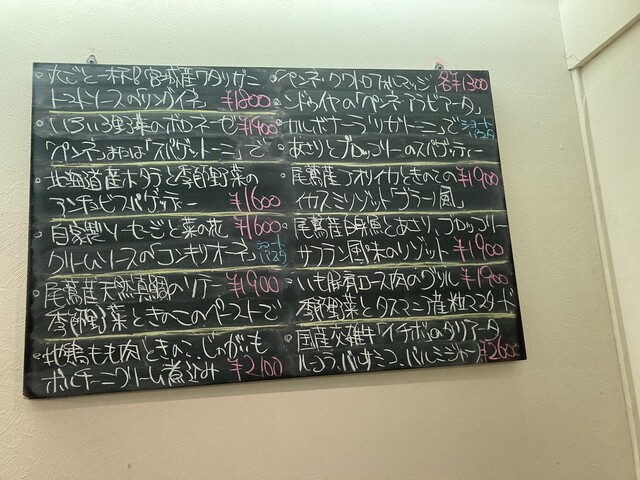 まるごと一杯!宮城産ワタリガニ
トマトソースの「リングイネ」 ¥1800
いろいろ野菜のボロネーゼ ¥1900
ペンネまたは「スパゲットーニ」で
北海道産ホタテと季節野菜の
アンチョビスパゲッティー ¥1600
自家製ソーセージと菜の花 ¥1600
クリームソースの「コンキリオーネ」 ショートパスタ
尾鷲産天然真鯛のソテー ¥1900
季節野菜ときのこのペーストで
地鶏もも肉ときのこ、じゃがいも
ポルチーニクリーム煮込み ¥2100
ペンネ・クワトロフォルマッジ 各¥1300
ンドゥイヤの「ペンネアラビアータ」
カルボナーラ「リガトーニ」で ショートパスタ
あさりとブロッコリーのスパゲッティー
尾鷲アオリイカときのこの ¥1900
イカスミリゾット「グラーノ風」
尾鷲産白身魚とあさり、ブロッコリー
サフラン風味のリゾット ¥1900
いも豚肩ロース肉のグリル ¥1900
季節野菜とタスマニア産粒マスタード
国産交雑牛「イチボ」のタリアータ
ルッコラ、バルサミコ、パルミジャーノ ¥2600